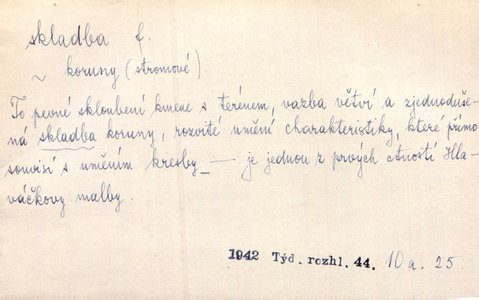 skladba f.
~ koruny (stromové).
To pevné skloubení kmene s terénem, vazba větví a zjednoduše-
ná skladba koruny, rozvité umění charakteristiky, které přímo
souvisí s uměním kresby – je jednou z prvých ctností Hla-
váčkovy malby.
1942 Týd. rozhl. 44. 10 a. 25.